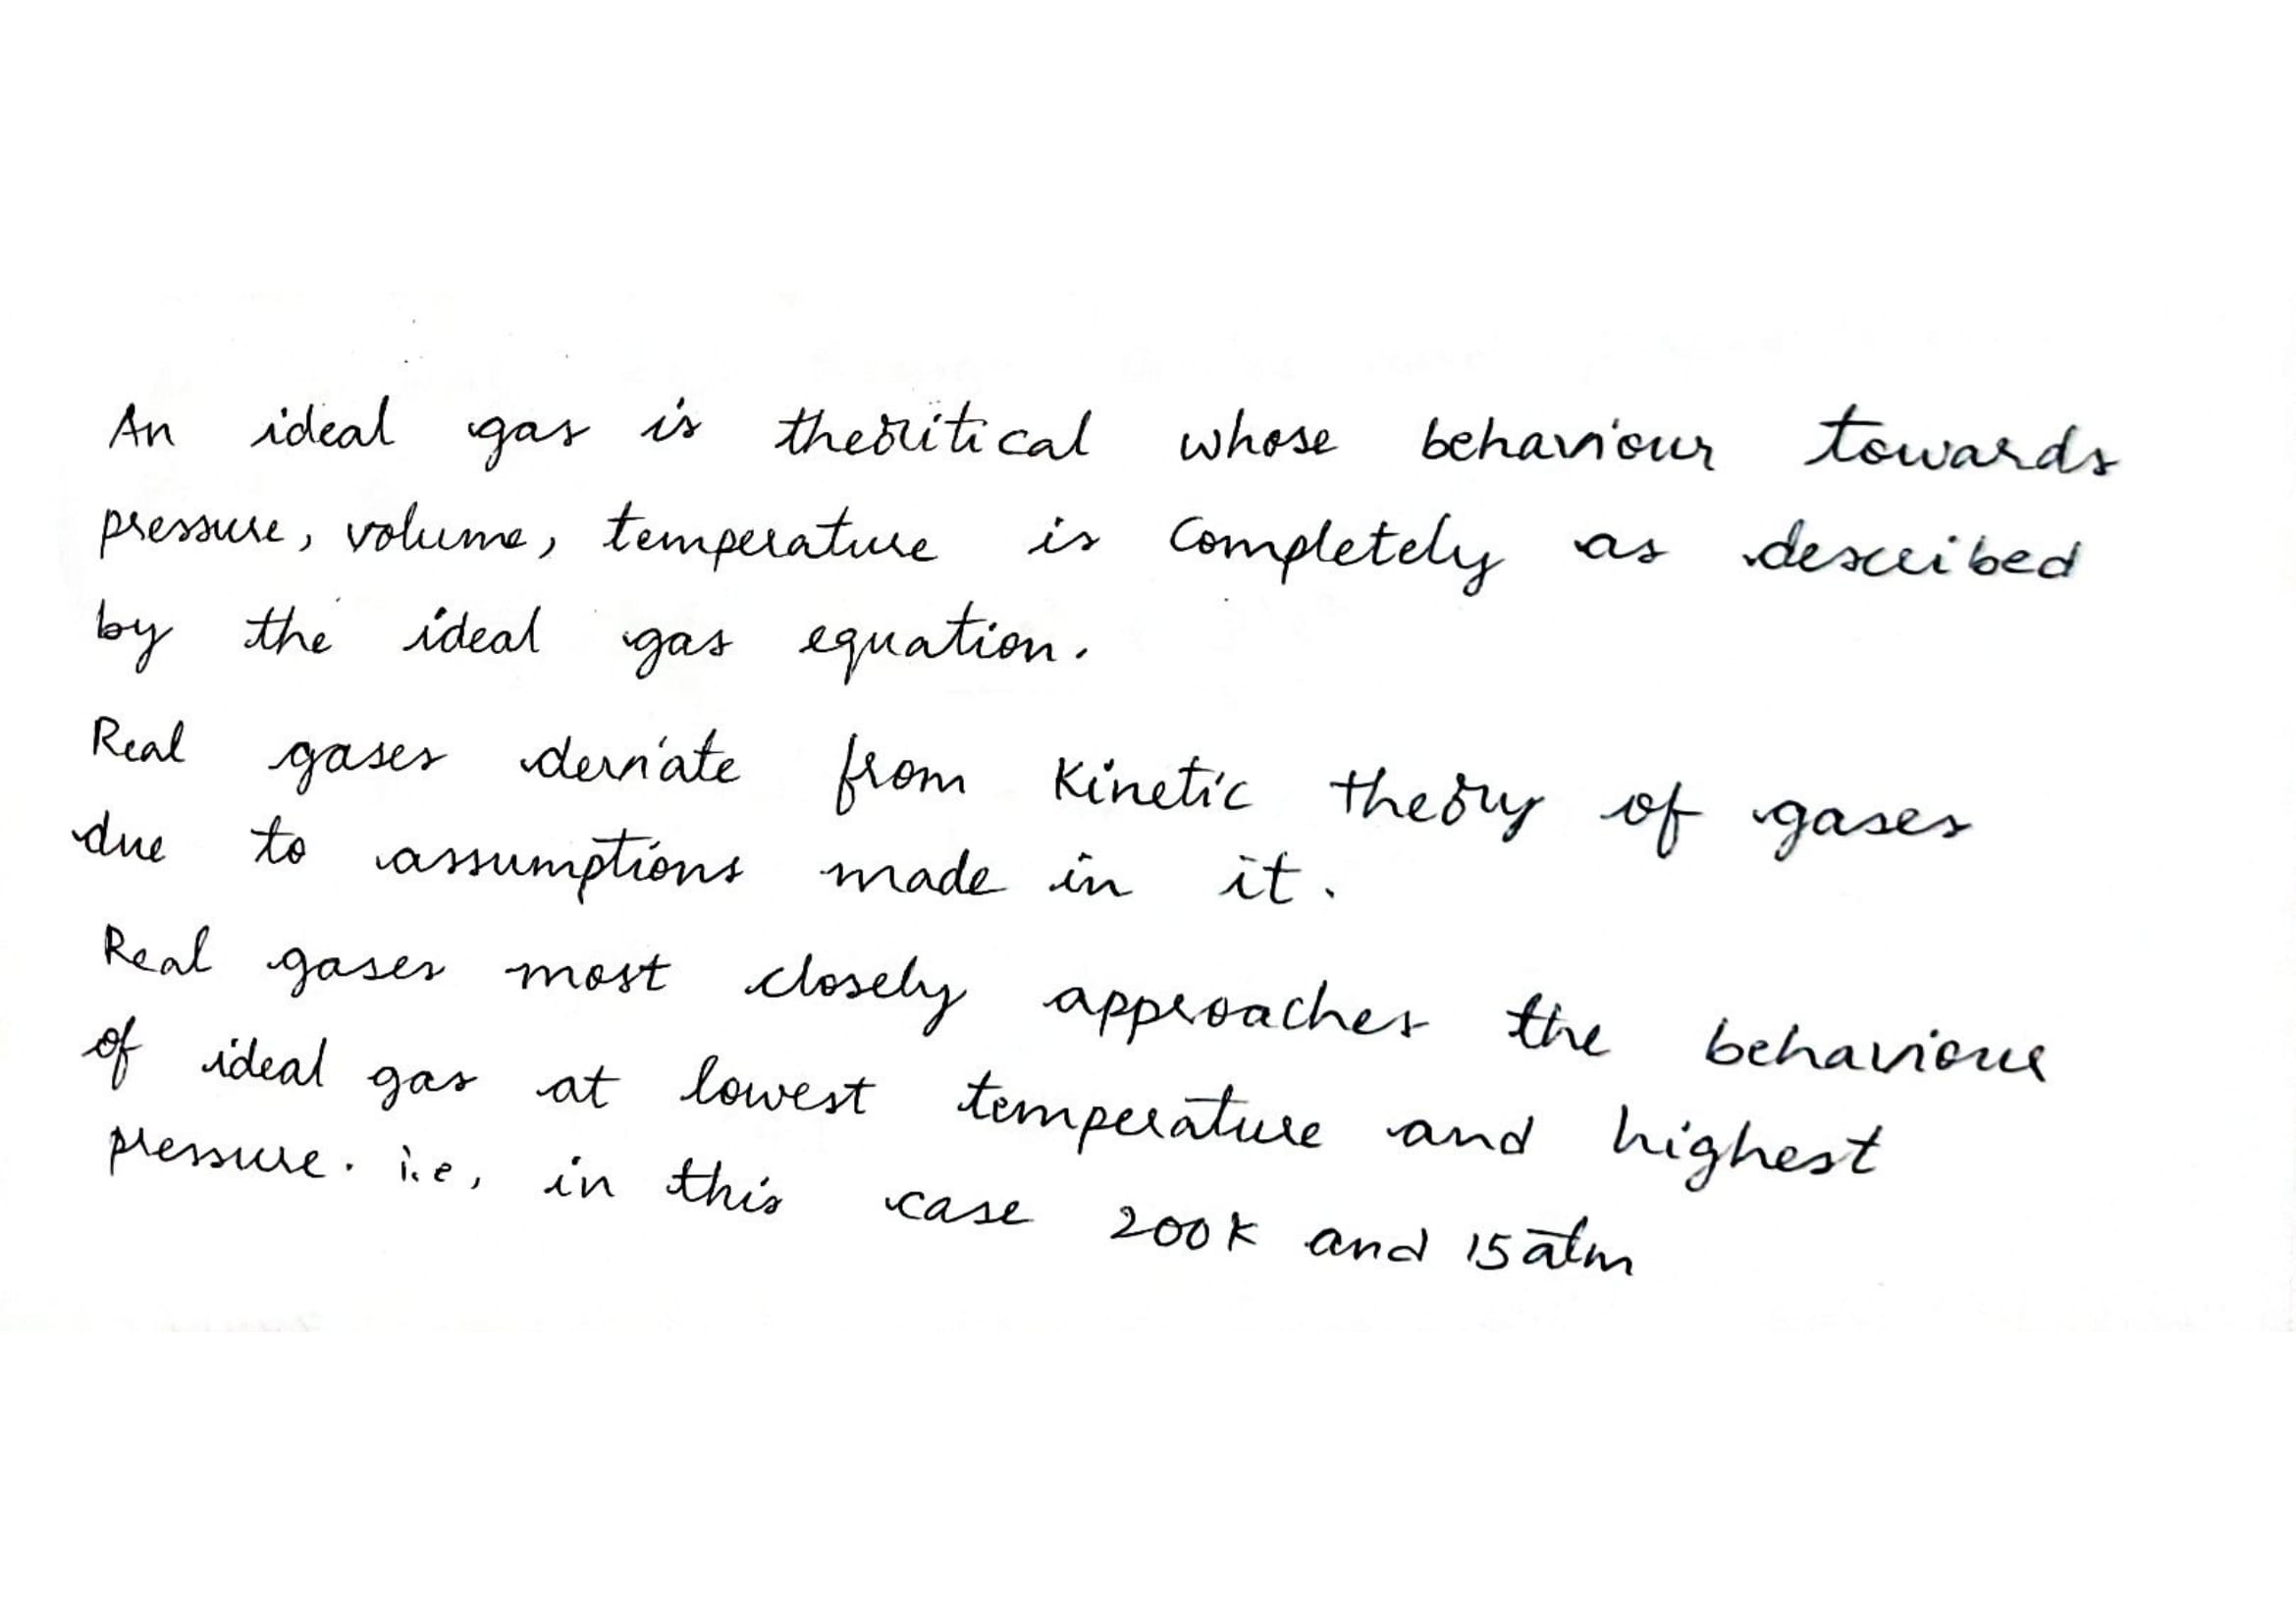 An ideal gas is theoritical whose behaviour towards
pressure, volume, temperature is completely as described
by the ideal gas equation.
Real gases deviate from Kinetic theory of gases
due to assumptions made in it.
Real gases most closely approaches the behaviour
of ideal gas at lowest temperature and highest
pressure. i.e, in this case 200K and 15 atm